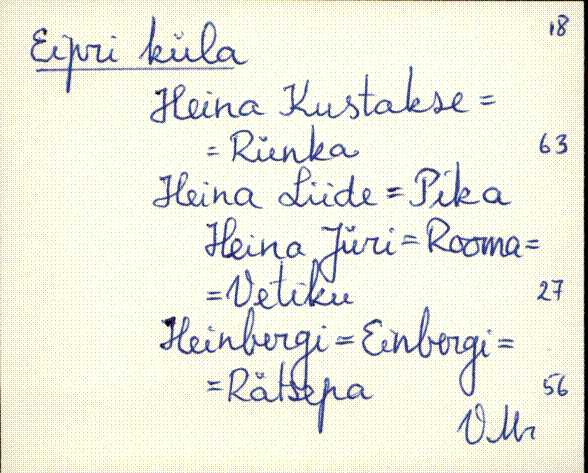 18
Eipri küla
Heina Kustakse =
= Rünka 63
Heina Liide = Pika
Heina Jüri = Rooma =
= Vetiku 27
Heinbergi = Einbergi =
= Rätsepa 56
V.Mr